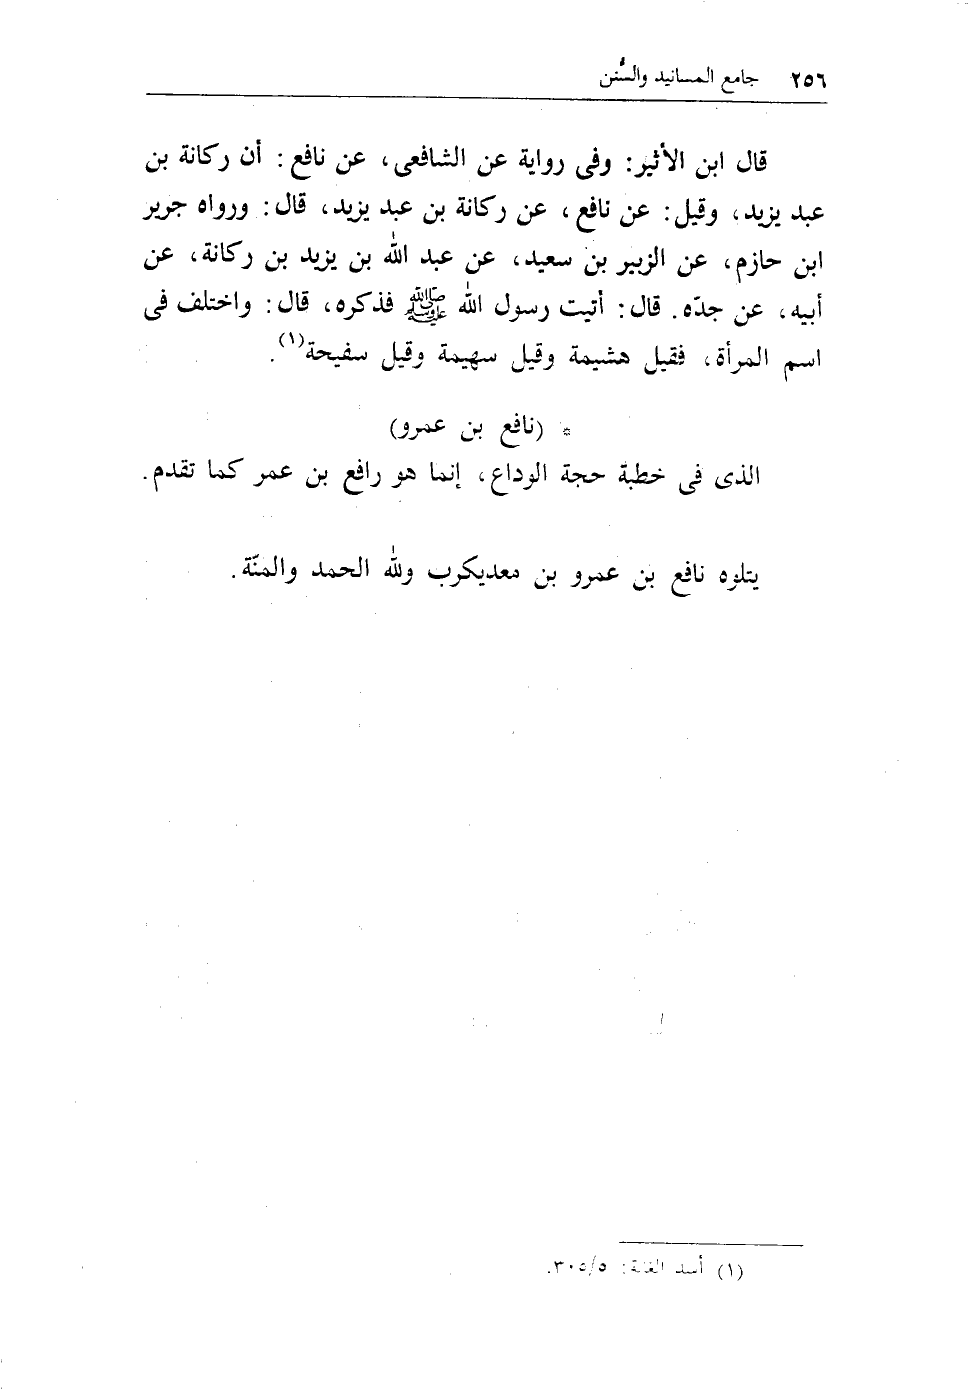 ٢٥٦ جامع المسانيد والسُّنن
قال ابن الأثير: وفى رواية عن الشافعى، عن نافع: أن ركانة بن
عبد يزيد، وقيل: عن نافع، عن ركانة بن عبد يزيد، قال: ورواه جرير
ابن حازم، عن الزبير بن سعيد، عن عبد الله بن يزيد بن ركانة، عن
أبيه، عن جدّه. قال: أتيت رسول الله ﷺ فذكره، قال: واختلف فى
اسم المرأة، فقيل هشيمة وقيل سهيمة وقيل سفيحة(١).
* (نافع بن عمرو)
الذى فى خطبة حجة الوداع، إنما هو رافع بن عمر كما تقدم.
يتلوه نافع بن عمرو بن معديكرب ولله الحمد والمنّة.
(١) أسد الغابة: ٣٠٥/٥.